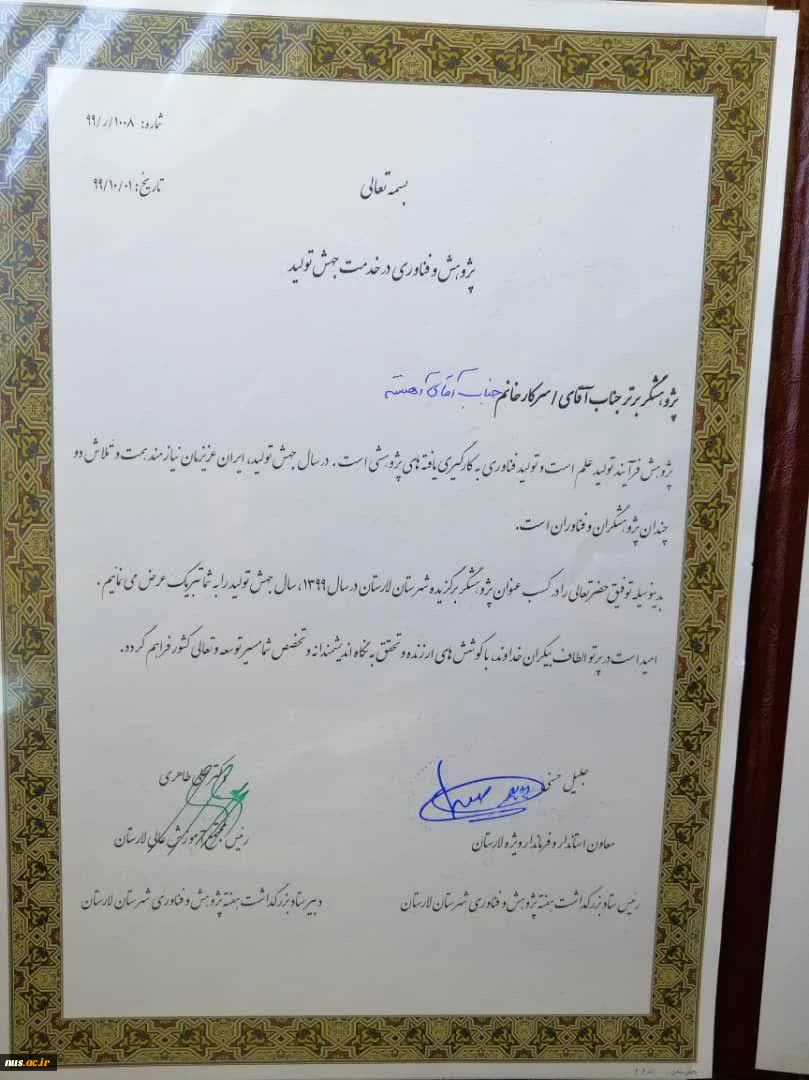 شماره: ۱۰۰۸/ر/۹۹
تاریخ: ۹۹/۱۰/۰۱
بسمه تعالی
پژوهش و فناوری در خدمت جهش تولید
پژوهشگر برتر جناب آقای / سرکار خانم جناب آقای آهسته
پژوهش فرآیند تولید علم است و تولید فناوری به کارگیری یافته های پژوهشی است. در سال جهش تولید، ایران عزیزمان نیازمند همت و تلاش دو
چندان پژوهشگران و فناوران است.
بدینوسیله توفیق حضرتعالی را در کسب عنوان پژوهشگر برگزیده شهرستان لارستان در سال ۱۳۹۹، سال جهش تولید را به شما تبریک عرض می نمایم.
امید است در پرتو الطاف بیکران خداوند، با کوشش های ارزنده و تحقق به نگاه اندیشمندانه و تخصص شما مسیر توسعه و تعالی کشور فراهم گردد.
جلیل حسنی
معاون استاندار و فرماندار ویژه لارستان
رئیس ستاد بزرگداشت هفته پژوهش و فناوری شهرستان لارستان
دکتر طاهری
رئیس مجتمع آموزش عالی لارستان
دبیر ستاد بزرگداشت هفته پژوهش و فناوری شهرستان لارستان
nus.ac.ir